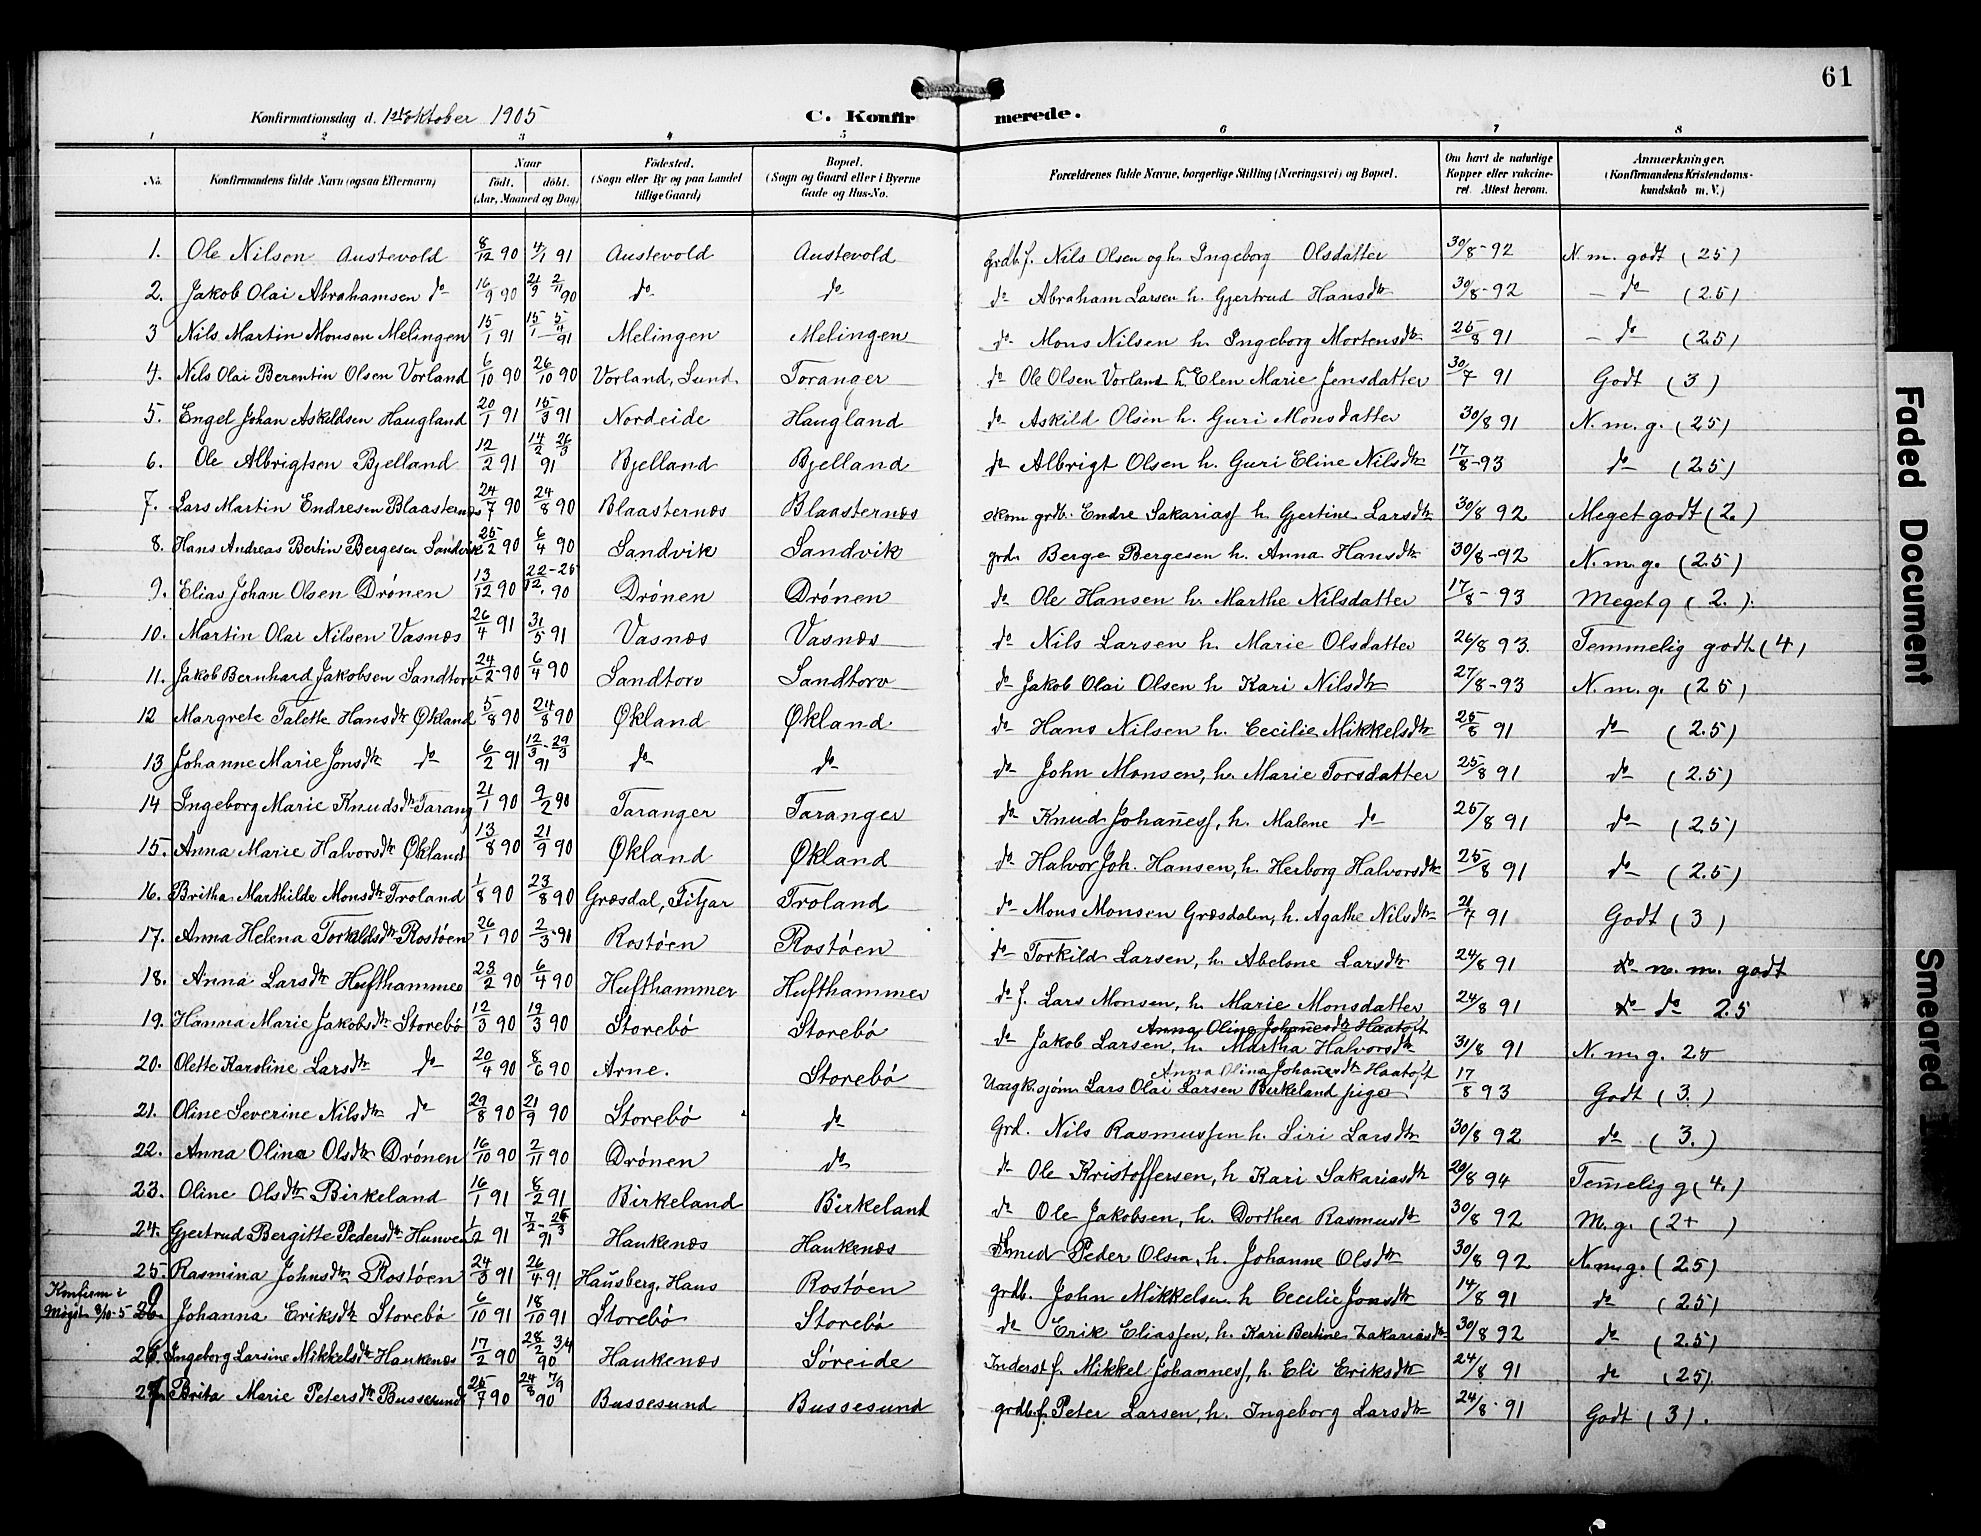 61
Konfirmationsdag d. 1ste oktober 1905 C. Konfirmerede.
1 2 3 4 5 6 7 8
No. Konfirmandens fulde Navn (ogsaa Efternavn) Naar født. døbt. (Aar, Maaned og Dag) Fødested. (Sogn eller By og paa Landet tillige Gaard) Bopæl. (Sogn og Gaard eller i Byerne Gade og Hus-No. Forældrenes fulde Navne, borgerlige Stilling (Næringsvei) og Bopæl. Om havt de naturlige Kopper eller vakcineret. Attest herom. Anmærkninger. (Konfirmandens Kristendomskundskab m. V.)
1. Ole Nilsen Austevold 8/12 90 4/1 91 Austevold Austevold Grdb. f. Nils Olsen og h. Ingeborg Olsdatter 30/8-92 N. m. godt (25)
2. Jakob Olai Abrahamsen do 16/9 90 21/9 2/11 90 do do do Abraham Larsen h. Gjertrud Hansdtr 30/8-92 - do (2.5)
3 Nils Martin Monsen Melingen 15/1 91 15/1 - 5/4 91 Melingen Melingen do Mons Nilsen h. Ingeborg Mortensdtr 25/8 91 - do (2.5)
4. Nils Olai Berentin Olsen Vorland 6/10 90 26/10 90 Vorland, Sund. Toranger do Ole Olsen Vorland h. Elen Marie Jensdatter 30/7 91 Godt (3)
5. Engel Johan Askildsen Haugland 20/1 91 15/3 91 Nordeide Haugland do Askild Olsen h. Guri Monsdatter 30/8 91 N. m. g. (25)
6. Ole Albrigtsen Bjelland 12/2 91 14/2 26/3 91 Bjelland Bjelland do Albrigt Olsen h. Guri Eline Nilsdtr 17/8-93 do (2.5)
7. Lars Martin Endresen Blaasternæs 24/7 90 24/8 90 Blaasternæs Blaasternæs skom grdb. Endre Sakariasf h. Gjertine Larsdtr 30/8 92 Meget godt (2.)
8. Hans Andreas Bertin Bergesen Sandvik 25/2 90 6/4 90 Sandvik Sandvik grdr Berge Bergesen h. Anna Hansdtr 30/8-92 N. m. g. (2.5)
9. Elias Johan Olsen Drönen 13/12 90 22-26/12. 90 Drönen Drönen do Ole Hansen h. Marthe Nilsdatter 17/8-93 Meget g (2.).
10. Martin Olai Nilsen Vasnæs 26/4 91 31/5 91 Vasnæs Vasnæs do Nils Larsen h. Marie Olsdatter 26/8 93. Temmelig godt (4)
11. Jakob Bernhard Jakobsen Sandtorv 24/2-90 6/4 90 Sandtorv Sandtorv do Jakob Olai Olsen h Kari Nilsdtr 27/8-93 N. m. g. (25)
12 Margrete Talette Hansdtr Økland 5/8 90 24/8 90 Økland Økland do Hans Nilsen h. Cecilie Mikkelsdtr 25/8 91 do (2.5)
13 Johanne Marie Jonsdtr do 6/2 91 12/3-29/3 91 do do do John Monsen, h. Marie Torsdatter 25/8 91 do (2.5)
14 Ingeborg Marie Knudsdtr Tarang 21/1 90 9/2 90 Taranger Taranger do Knud Johanesf, h. Malene do 25/8 91 do (2.5)
15. Anna Marie Halvorsdtr Økland 13/8 90 21/9 90 Økland Økland do Halvor Joh. Hansen, h. Herborg Halvorsdtr 25/8 91 do (2.5)
16. Britha Marthilde Monsdtr Troland 1/8 90 23/8 90 Græsdal, Fitjar Troland do Mons Monsen Græsdalen, h. Agathe Nilsdtr 21/7 91 Godt (3)
17. Anna Helena Torkildsdtr Rostöen 26/1 90 2/3-90 Rostöen Rostöen do Torkild Larsen, h. Abelone Larsdtr 24/8 91 do n. m. godt
18. Anna Larsdtr Hufthammer 23/2 90 6/4 90 Hufthammer Hufthammer do f. Lars Monsen, h. Marie Monsdatter 24/8 91 do do 2.5
19. Hanna Marie Jakobsdtr Storebö 12/3 90 19/3 90 Storebö Storebö do Jakob Larsen, h. Martha Halvorsdtr 31/8 91 N. m. g. 25
Anna Olina Johanesdtr Haatoft
20. Olette Karoline Larsdtr do 20/4 90 8/6 90 Arne. Storebö Uægk. sjöm Lars Olai Larsen Birkeland pige Anna Olina Johanesdtr Haatoft 17/8 93 Godt (3.)
21. Oline Severine Nilsdtr do 29/8 90 21/9 90 Storebö do Grd. Nils Rasmussen h. Siri Larsdtr 30/8 92 do (3.)
22. Anna Olina Olsdtr Drönen 16/10 90 2/11 90 Drönen do do Ole Kristoffersen, h Kari Sakariasdtr 29/8 94 Temelig g (4.)
23. Oline Olsdtr Birkeland 16/1 91 8/2 91 Birkeland Birkeland do Ole Jakobsen, h. Dorthea Rasmusdtr 30/8 92 M. g. (2+)
24. Gjertrud Bergitte Pedersdtr 1/2 91 Haukenæs Haukenæs Smed Peder Olsen, h. Johanne Olsdtr 30/8 92 N. m. g. (25)
25. Rasmina Johnsdtr Rostöen 24/3 91 26/4 91 Rostöen grdb. John Mikkelsen h Cecilie Jonsdtr 14/8 91 do (25)
Konfirm i Møgst. 8/10-5
26. Johanna Eriksdtr Storebö 6/10 91 18/10 91 Storebö Storebö do Erik Eliassen, h. Kari Bertine Zakariasdtr 30/8 92 do (2.5)
26. Ingeborg Larsine Mikkelsdtr Haukenæs 17/2 90 28/2 3/4 90 Haukenæs Söreide Inderst f. Mikkel Johannesf, h. Eli Eriksdtr 24/8 91 do (25)
27. Brita Marie Petersdtr Bussesund 25/7 90 24/8 7/9 90 Bussesund Bussesund grdb. f. Peter Larsen, h. Ingeborg Larsdtr 24/8-91 Godt (3).
Faded Document
Smeared